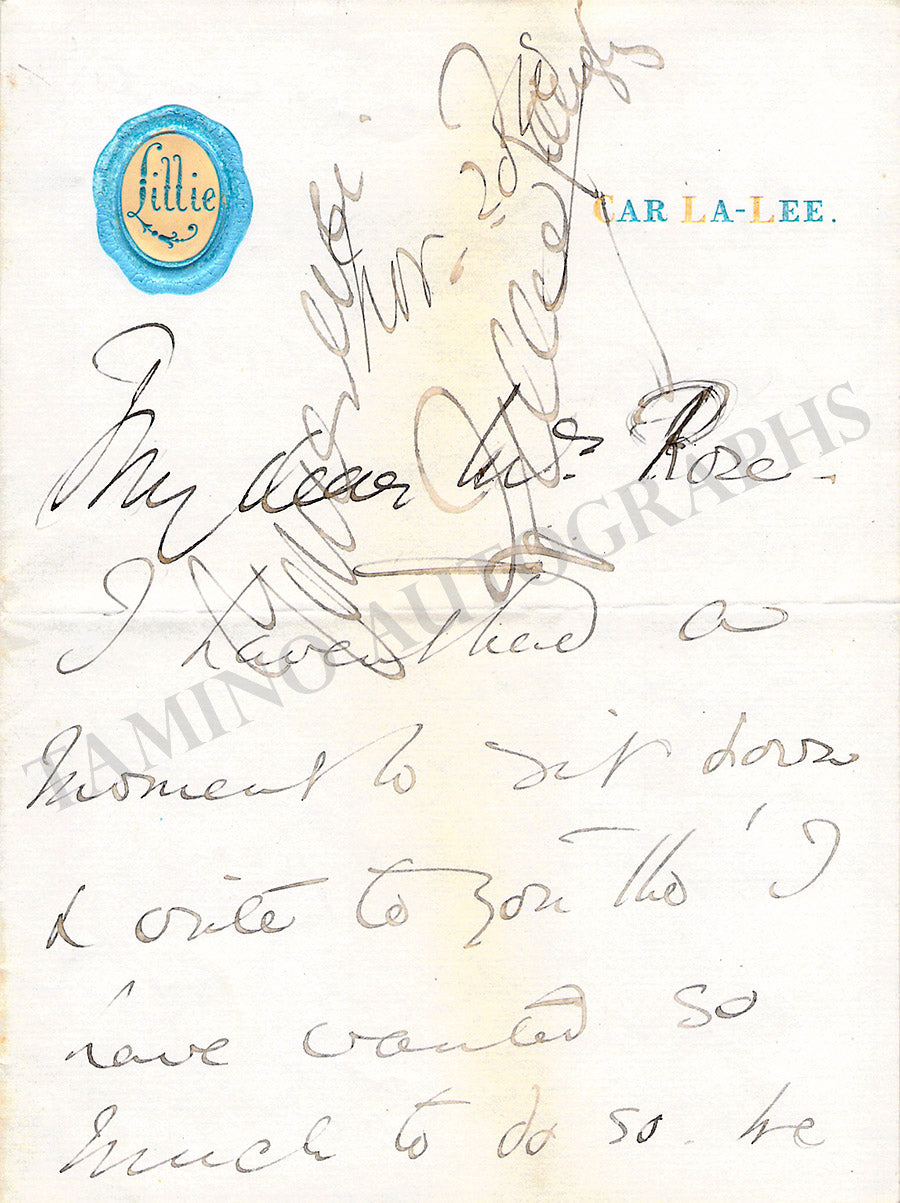 Lillie
CAR LA-LEE.
Nov. 20
My dear Mrs. Rose.
I haven't had a
moment to sit down
& write to you tho' I
have wanted so
much to do so. We
TAMINO AUTOGRAPHS